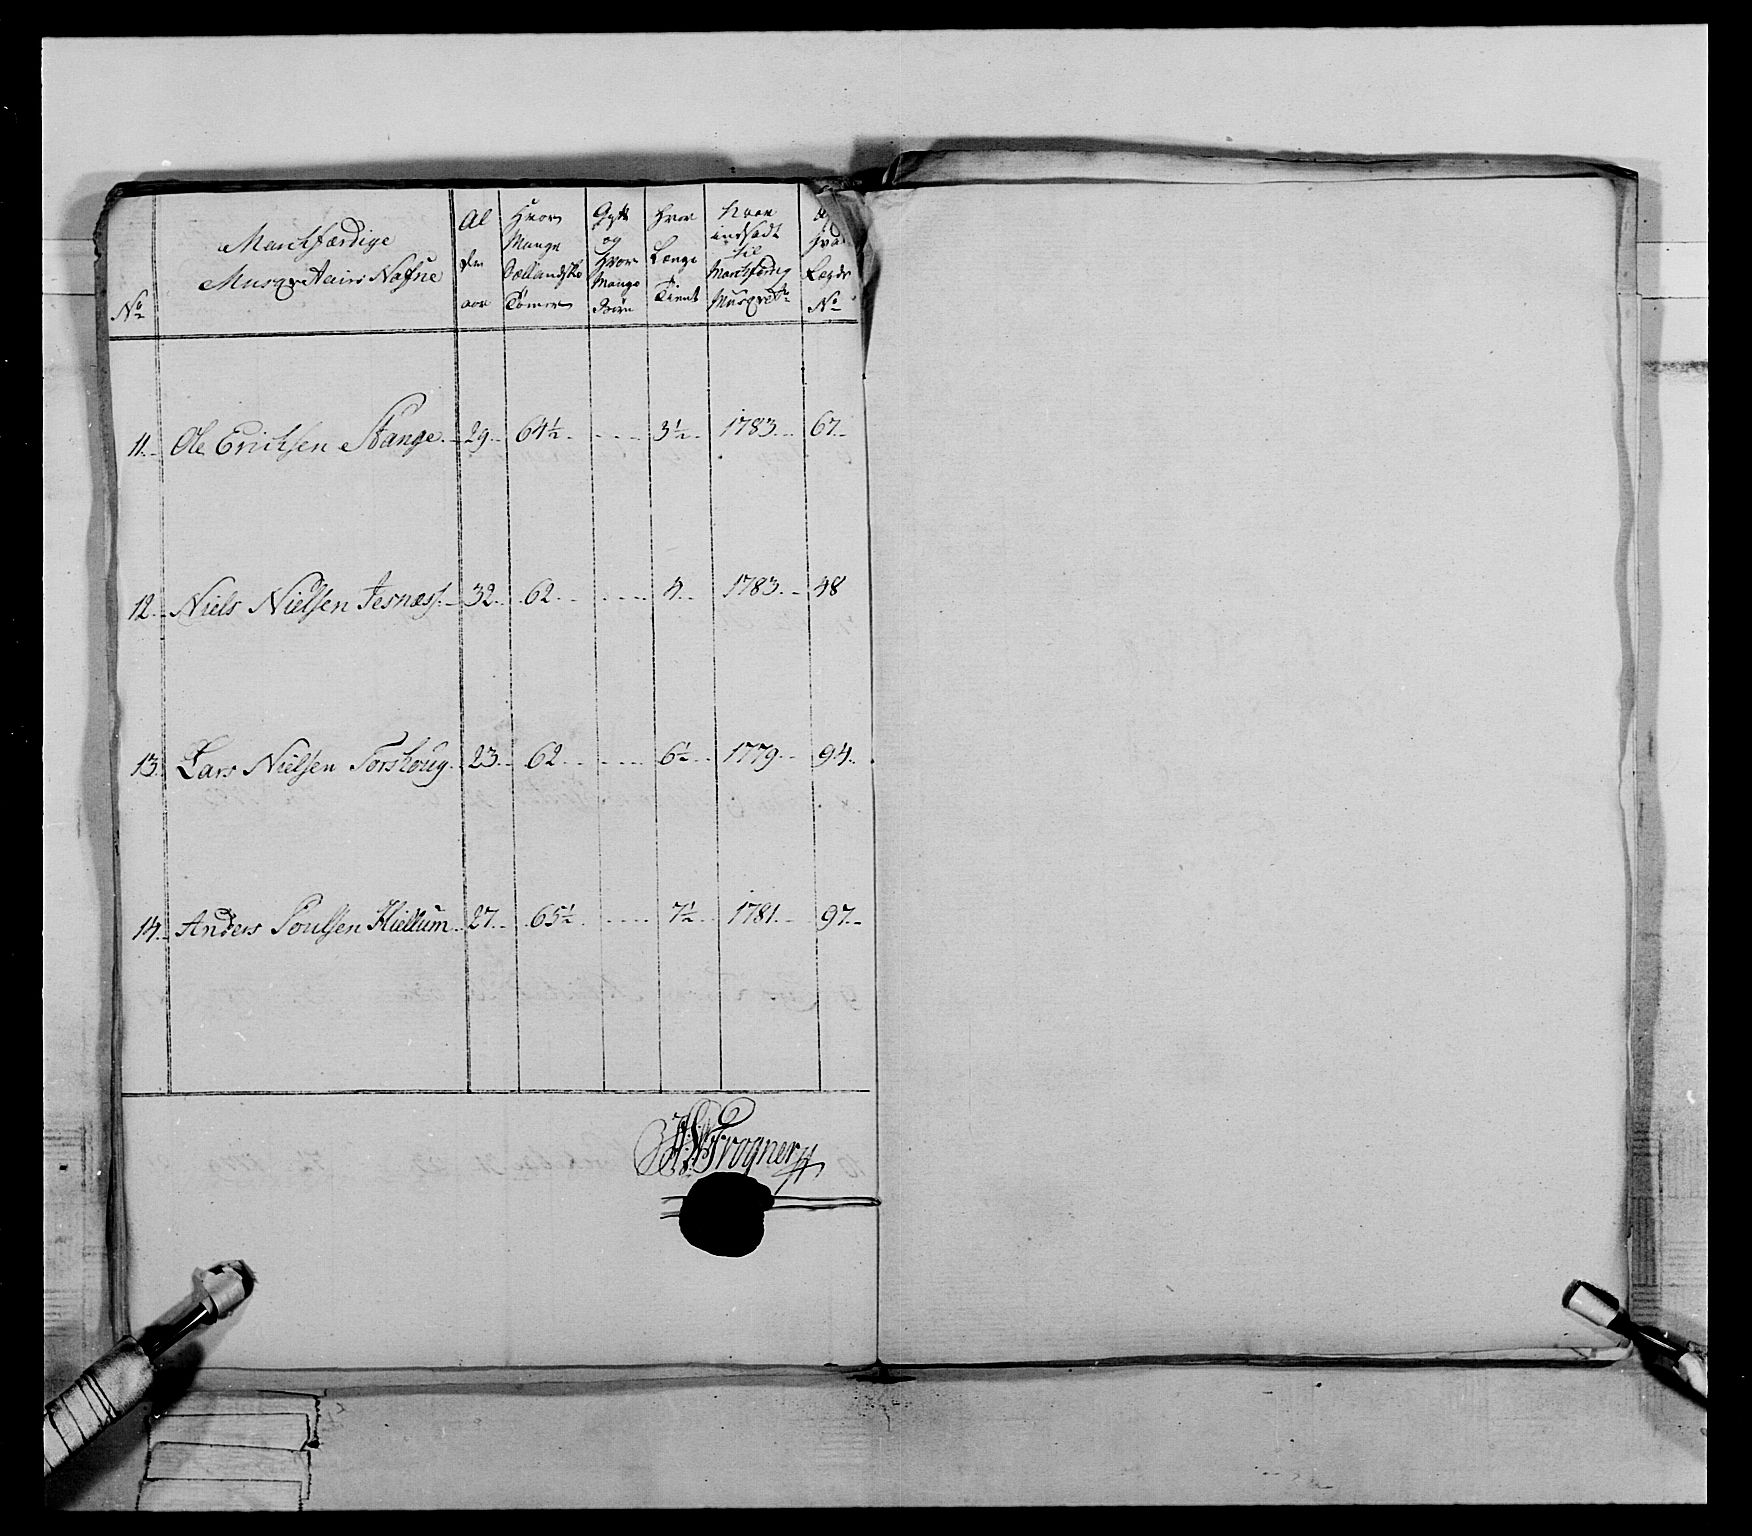 No
Marchfærdige
Musqvetairs Nafne
Al
der
aar
Hvor
Mange
Siællandske
Tommer
Gift
og
Hvor
Mange
Børn
Hvor
Længe
Tient
Naar
indsadt
til
Marchfærdig
Musqvet:
af
hvad
Lægds
No
11. Ole Erichsen Stange. 29. 64½. 3½. 1783. 67.
12. Niels Nielsen Jesnæss. 32. 62. 4. 1783. 48
13. Lars Nielsen Torshoug. 23. 62. 6½. 1779. 94.
14. Anders Poulsen Hiellum. 27. 65½. 7½. 1781. 97.
Trogner